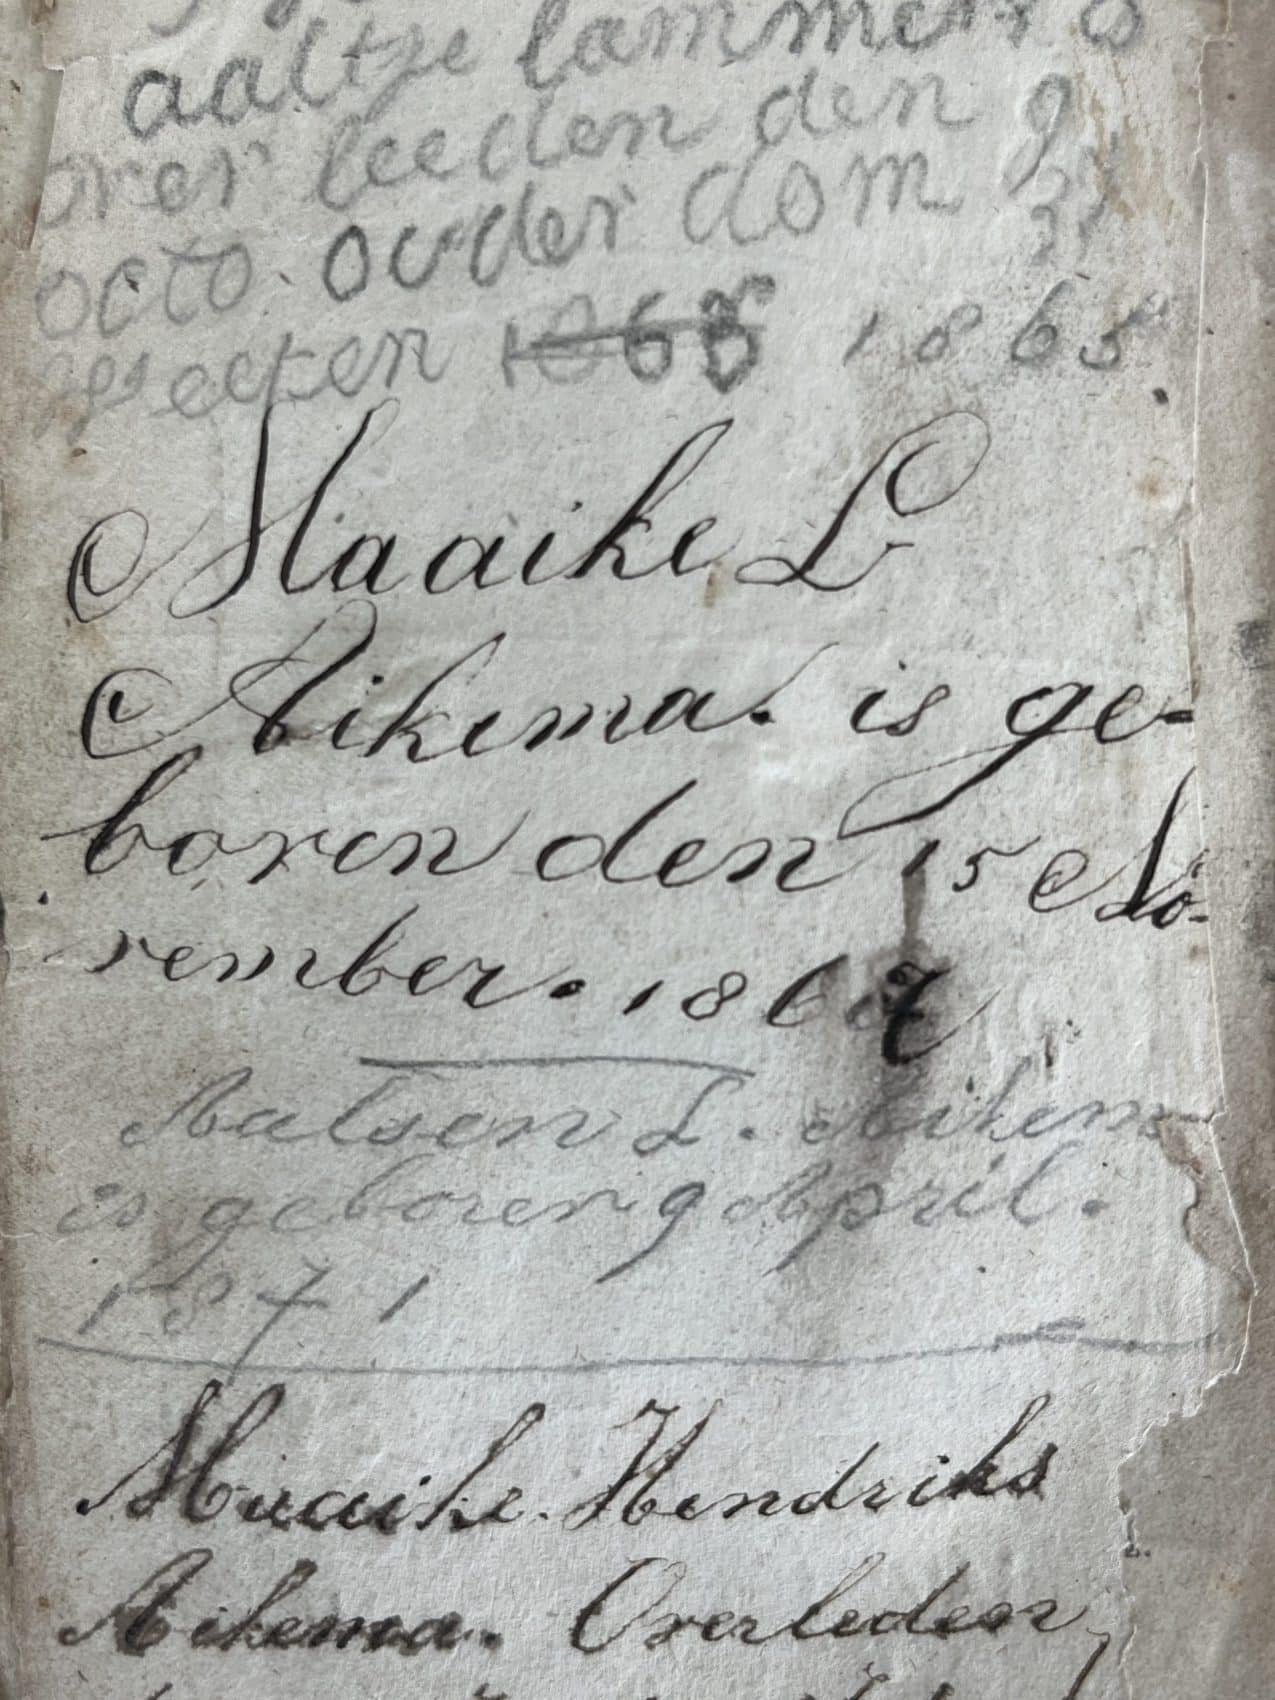 aaltje lammerts
over leeden den 9
octo. ouder dom 31
1868 1865
Maaike L
Aikema. is ge-
boren den 15 No-
vember. 1867
L. Aikem
is geboren 9 April.
1871
Maaike. Hendriks
Aikema. Overleden